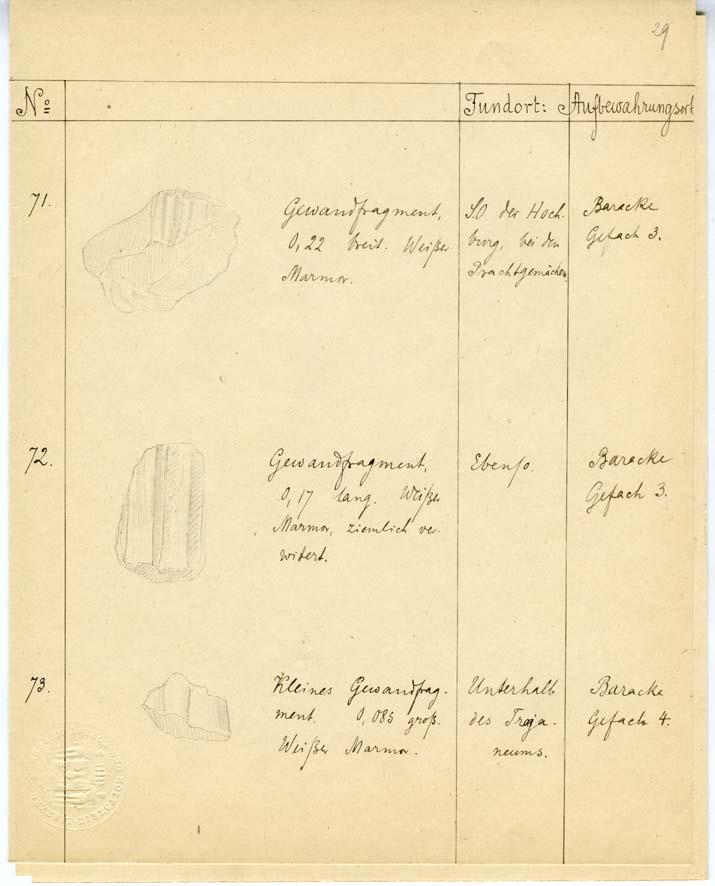 29
No Fundort: Aufbewahrungsort
71.
Gewandfragment,
0,22 breit. Weißer
Marmor.
S.O der Hoch-
burg, bei den
Prachtgemächern
Baracke
Gefach 3.
72.
Gewandfragment,
0,17 lang. Weißer
Marmor, ziemlich ver-
wittert.
Ebenso.
Baracke
Gefach 3.
73.
Kleines Gewandfrag-
ment. 0,085 groß.
Weißer Marmor.
Unterhalb
des Traja-
neums.
Baracke
Gefach 4.